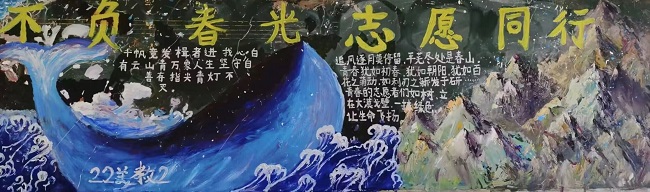 不负春光志愿同行
千帆竞发楫者进 我心自
有云山青万象人生坚守自
善吞指尖青灯不
灭
追风逐月莫停留,平芜尽处是春山。
青春犹如初春,犹如朝阳,犹如百
花之萌动,如利刃之新发于硎……
青春的志愿者们如树,立
在大漠戈壁,一抹绿色,
让生命飞扬
22美教2